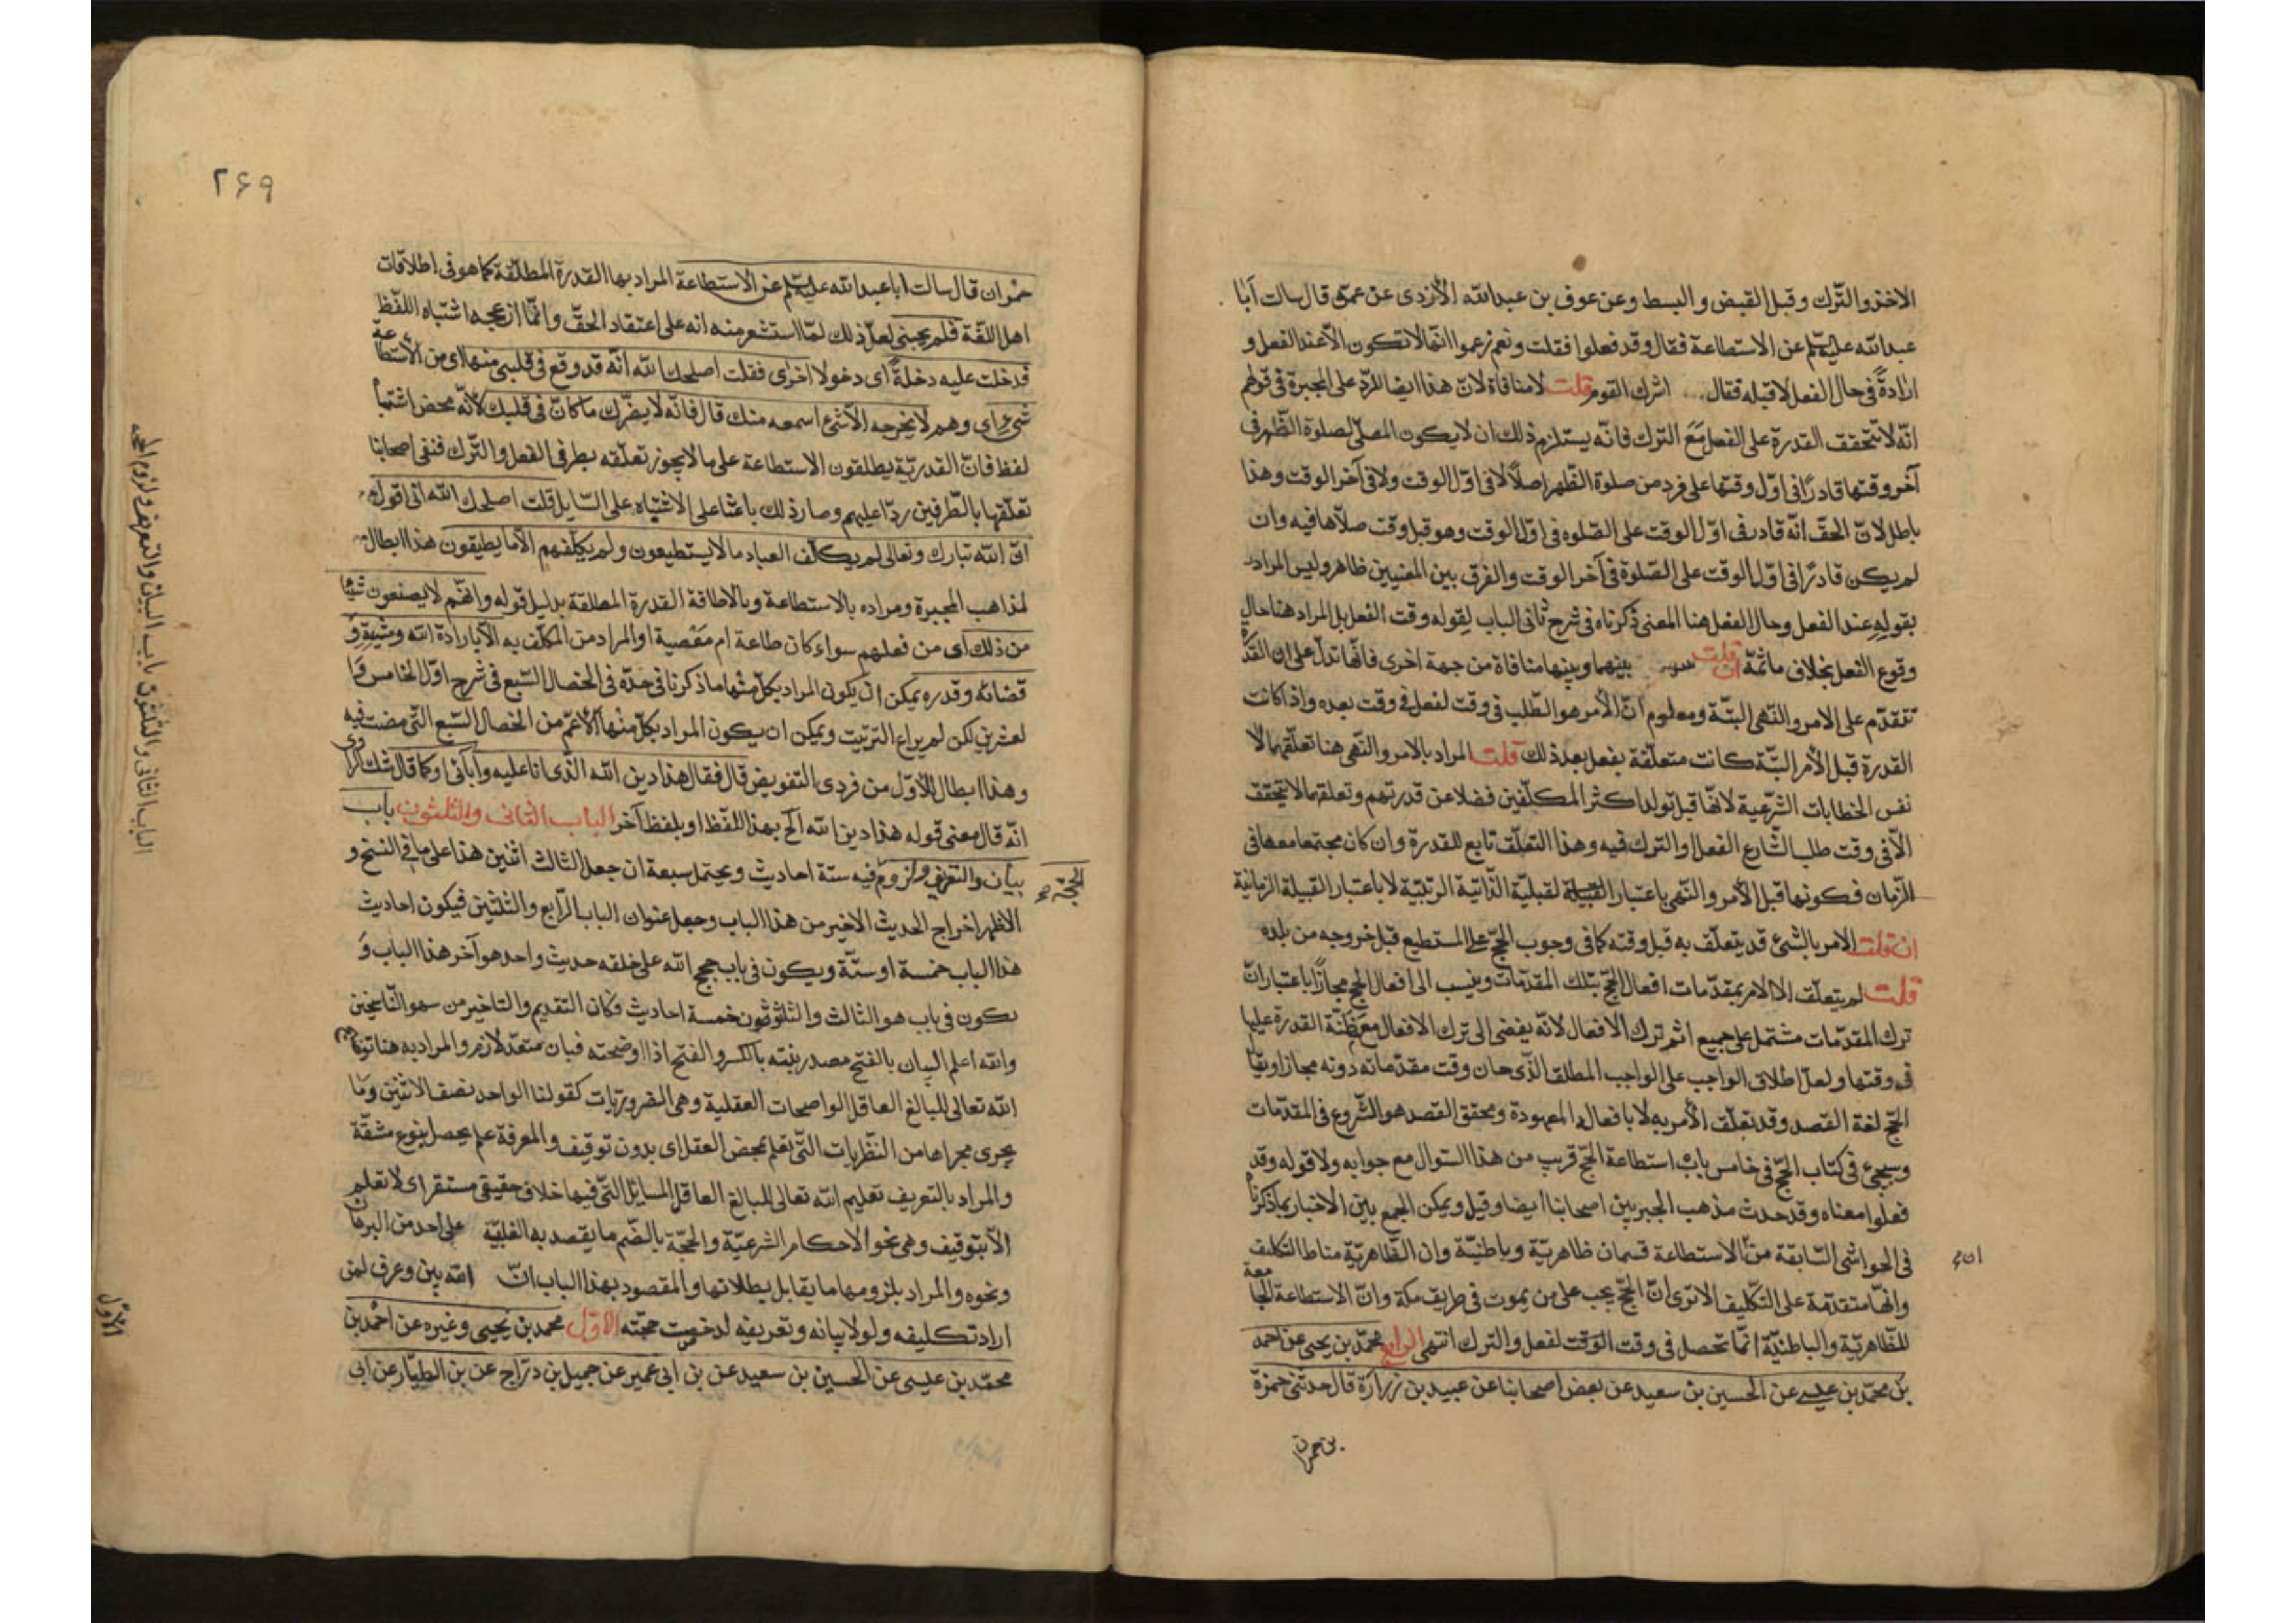 الاخذ والتّرك وقبل القبض والبسط وعن عوف بن عبدالله الأزدى عن عمّه قال سالت أبا
عبدالله عليه السّلم عن الاستطاعة فقال وقد فعلوا فقلت ونعم زعموا انّها لا تكون الّا عند الفعل و
ارادةً فى حال الفعل لا قبله فقال اشرك القوم قلت لا منافاة لانّ هذا ايضا للردّ على المجبرة فى قولهم
انّه لا تتحقق القدرة على الفعل مَعَ الترك فانّه يستلزم ذلك ان لا يكون المصلّى لصلوة الظّهر فى
آخر وقتها قادرًا فى اوّل وقتها على فرد من صلوة الظّهر اصلًا لا فى اوّل الوقت ولا فى آخر الوقت وهذا
باطل لانّ الحقّ انّه قادر فى اوّل الوقت على الصّلوه فى اوّل الوقت وهو قبل وقت صلّاها فيه وان
لم يكن قادرًا فى اوّل الوقت على الصّلوة فى آخر الوقت والفرق بين المعنيين ظاهر وليس المراد
بقولهِ عند الفعل وحال الفعل هنا المعنى ذكرناه فى شرح ثانى الباب لقوله وقت الفعل بل المراد هنا حال
وقوع الفعل بخلاف ما ثمّة ان قلت بينهما وبينها منافاة من جهة اخرى فانّها تدلّ على ان القدرة
تتقدّم على الامر والنّهى البتّة ومعلوم انّ الأمر هو الطّلب فى وقت لفعل فى وقت بعده واذا كانت
القدرة قبل الأمر البتّة كانت متعلّقة بفعل بعد ذلك قلت المراد بالامر والنّهى هنا تعلّقهما لا
نفس الخطابات الشّرعية لانّها قبل تولد اكثر المكلّفين فضلا عن قدرتهم وتعلقهما لا يتحقق
الّا فى وقت طلب الشّارع الفعل او الترك فيه وهذا التعلّق تابع للقدرة وان كان مجتمعا معها فى
الزّمان فكونها قبل الأمر والنّهى باعتبار القبلية لقبليّة الذّاتية الرتبيّة لا باعتبار القبيلة الزمانية
ان قلت الامر بالشئ قد يتعلّق به قبل وقته كما فى وجوب الحجّ على المستطيع قبل خروجه من بلده
قلت لم يتعلّق الا الامر بمقدّمات افعال الحجّ بتلك المقدّمات وينسب الى افعال الحج مجازًا باعتبار انّ
ترك المقدّمات مشتمل على جميع اثم ترك الافعال لانّه يفضى الى ترك الافعال مع مظنّة القدرة عليها
فى وقتها ولعلّ اطلاق الواجب على الواجب المطلق الذّى حان وقت مقدّماته دونه مجاز او يقا
الحجّ لغة القصد وقد تعلّق الأمر به لا بافعاله المعهودة ومحقق القصد هو الشّروع فى المقدّمات
وسيجئ فى كتاب الحجّ فى خامس باب استطاعة الحجّ قريب من هذا السّوال مع جوابه ولا قوله وقد
فعلوا معناه وقد حدث مذهب الجبر بين اصحابنا ايضا وقيل ويمكن الجمع بين الاخبار بما ذكرنا
فى الحواشى السّابقة من ان الاستطاعة قسمان ظاهريّة وباطنيّة وان الظّاهريّة مناط التكليف
وانّها متقدّمة على التّكليف الا ترى انّ الحجّ يجب على من يموت فى طريق مكة وانّ الاستطاعة الجامعة
للظّاهريّة والباطنيّة انّما تحصل فى وقت الوقت لفعل والترك انتهى الرابع محمّد بن يحيى عن احمد
بن محمّد بن عيسى عن الحسين بن سعيد عن بعض اصحابنا عن عبيد بن زرارة قال حدثنى حمزة
بن حمران
٢۶٩
حمران قال سالت ابا عبدالله عليه السّلم عن الاستطاعة المراد بها القدرة المطلّقة كما هو فى اطلاقات
اهل اللّغة فلم يجبنى لعلّ ذلك لمّا استشعر منه انه على اعتقاد الحقّ وانّما ازعجه اشتباه اللفّظ
فدخلت عليه دخلةً اى دخولا اخرى فقلت اصلحك الله انّه قد وقع فى قلبى منها اى من الأستطاعة
شئ اى وهم لا يخرجه الّا شئ اسمعه منك قال فانّه لا يضّرك ما كانّ فى قلبك لأنّه محض اشتباه
لفظ فانّ القدريّة يطلقون الاستطاعة على ما لا يجوز تعلّقه بطرفى الفعل والتّرك فنفى اصحابنا
تعلّقها بالطّرفين ردّا عليهم وصار ذلك باعثا على الاشتباه على السّايل قلت اصلحك الله انى اقول
انّ الله تبارك وتعالى لم يكلّف العباد ما لا يستطيعون ولم يكلّفهم الّا ما يطيقون هذا ابطال
لمذاهب المجبرة ومراده بالاستطاعة وبالاطاقة القدرة المطلقة بدليل قوله وانّهم لا يصنعون شيئا
من ذلك اى من فعلهم سواء كان طاعة ام معْصية او المراد من المكلّف به الّا بارادة الله ومشيّته وَ
قضائه وقدره يمكن ان يكون المراد بكلّ منها ما ذكرنا فى حدّه فى الخصال السّبع فى شرح اوّل الخامس وا
لعشرين لكن لم يراع الترتيب ويمكن ان يكون المراد بكلّ منها الأعمّ من الخصال السّبع التّى مضت فيه
وهذا ابطال للأوّل من فردى التفويض قال فقال هذا دين الله الّذى انا عليه وآبائى او كما قال شك الرّاوى
انّه قال معنى قوله هذا دين الله الخ بهذا اللفّظ او بلفظ آخر الباب الثانى والثلثون باب
بيان والتعريف ولزوم الحجّة فيه ستة احاديث ويحتمل سبعة ان جعل الثالث اثنين هذا على ما فى النسخ و
الاظهر اخراج الحديث الاخير من هذا الباب وجعل عنوان الباب الرّابع والثلثين فيكون احاديث
هذا الباب خمسة او ستّة ويكون فى باب حجج الله على خلقه حديث واحد هو آخر هذا الباب وَ
يكون فى باب هو الثالث والثلثون خمسة احاديث وكان التقديم والتاخير من سهو النّاسخين
والله اعلم البيان بالفتح مصدر بنته بالكسر والفتح اذا اوضحته فبان متعدّ لازم والمراد به هنا
الله تعالى للبالغ العاقل الواضحات العقلية وهى الضروريّات كقولنا الواحد نصف الاثنين وَما
يجرى مجراها من النّظريات التّى تعلم بمحض العقل اى بدون توقيف والمعرفة علم يحصل بنوع مشقّة
والمراد بالتعريف تعليم الله تعالى للبالغ العاقل المسايل التّى فيها خلاف حقيقى مستقر اى لا تعلم
الّا بتوقيف وهى نحو الاحكام الشرعيّة والحجّة بالضّم ما يقصد به الغلبيّة على احد من البرهان
ونحوه والمراد بلزومها ما يقابل بطلانها والمقصود بهذا الباب انّ الله بين وعرف لمن
اراد تكليفه ولولا بيانه وتعريفه لدحضت حجّته الاوّل محمد بن يحيى وغيره عن احمد بن
محمّد بن عيسى عن الحسين بن سعيد عن بن ابى عمير عن جميل بن درّاج عن بن الطيّار عن ابى
الباب الثانى والثلثون باب البيان والتعريف ولزوم الحجه
الاوّل